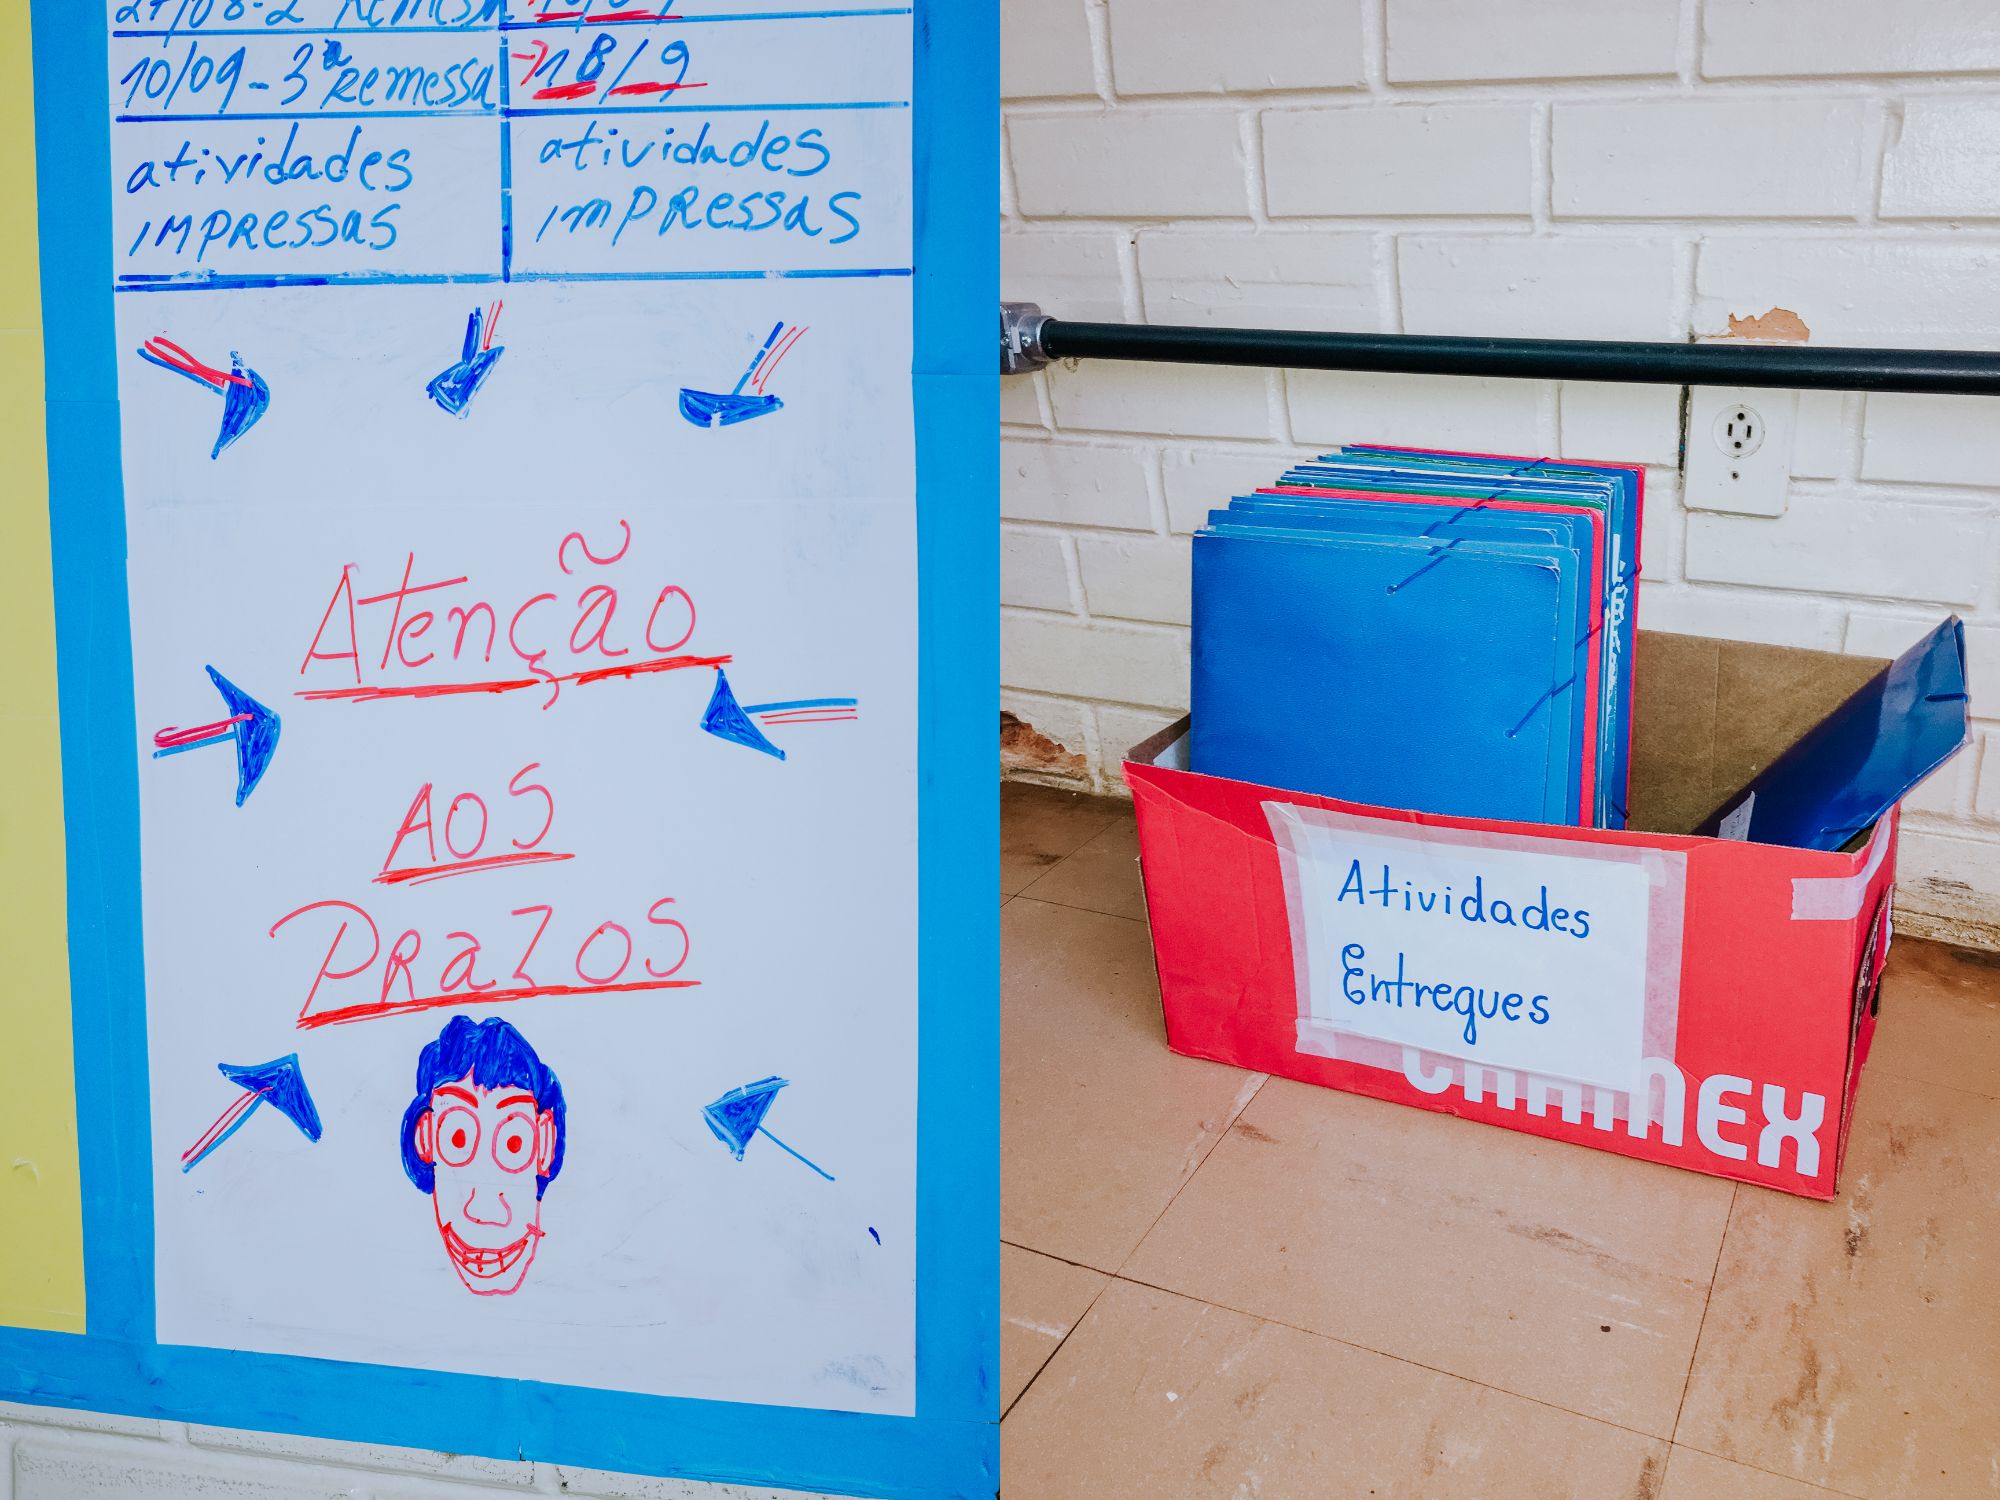 27/08-2ª Remessa
10/09-3ª Remessa
18/9
atividades
IMPRessas
atividades
IMPRessas
Atenção
AOS
PRaZOS
Atividades
Entregues
CHAMEX